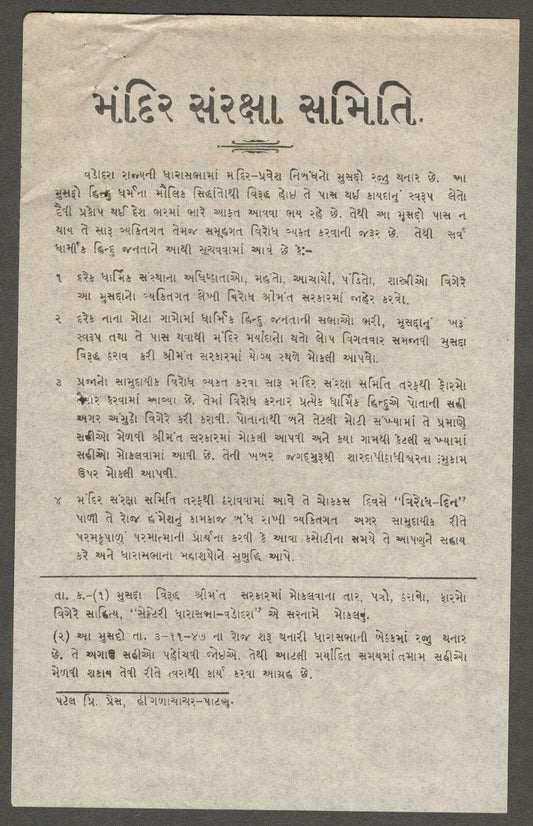 મંદિર સંરક્ષા સમિતિ.
વડોદરા રાજ્યની ધારાસભામાં મંદિર-પ્રવેશ નિબંધનો મુસદ્દો રજુ થનાર છે. આ
મુસદ્દો હિન્દુ ધર્મના મૌલિક સિદ્ધાંતોથી વિરૂદ્ધ હોઇ તે પાસ થઈ કાયદાનું સ્વરૂપ લેતો
દૈવી પ્રકોપ થઈ દેશ ભરમાં ભારે આફત આવવા ભય રહે છે. તેથી આ મુસદ્દો પાસ ન
થાય તે સારૂ વ્યક્તિગત તેમજ સમૂહગત વિરોધ વ્યક્ત કરવાની જરૂર છે. તેથી સર્વ
ધાર્મીક હિન્દુ જનતાને આથી સૂચવવામાં આવે છે કે:-
૧ દરેક ધાર્મિક સંસ્થાના અધિષ્ઠાતાઓ, મહંતો, આચાર્યો, પંડિતો, શાસ્ત્રીઓ વિગેરે
આ મુસદ્દાનો વ્યક્તિગત લેખી વિરોધ શ્રીમંત સરકારમાં જાહેર કરવો.
૨ દરેક નાના મોટા ગામોમાં ધાર્મિક હિન્દુ જનતાની સભાઓ ભરી, મુસદ્દાનું ખરૂં
સ્વરૂપ તથા તે પાસ થવાથી મંદિર મર્યાદાનો થતો લોપ વિગતવાર સમજાવી મુસદ્દા
વિરૂદ્ધ ઠરાવ કરી શ્રીમંત સરકારમાં યોગ્ય સ્થળે મોકલી આપવો.
૩ પ્રજાનો સામુદાયીક વિરોધ વ્યક્ત કરવા સારૂ મંદિર સંરક્ષા સમિતિ તરફથી ફારમો
તૈયાર કરવામાં આવ્યા છે. તેમાં વિરોધ કરનાર પ્રત્યેક ધાર્મિક હિન્દુએ પોતાની સહી
અગર અંગુઠો વિગેરે કરી કરાવી. પોતાનાથી બને તેટલી મોટી સંખ્યામાં તે પ્રમાણે
સહીઓ મેળવી શ્રીમંત સરકારમાં મોકલી આપવી અને કયા ગામથી કેટલી સંખ્યામાં
સહીઓ મોકલવામાં આવી છે. તેની ખબર જગદ્ગુરૂશ્રી શારદાપીઠાધીશ્વરના મુકામ
ઉપર મોકલી આપવી.
૪ મંદિર સંરક્ષા સમિતિ તરફથી ઠરાવવામાં આવે તે ચોક્કસ દિવસે “વિરોધ-દિન”
પાળી તે રોજ હંમેશનું કામકાજ બંધ રાખી વ્યક્તિગત અગર સામુદાયીક રીતે
પરમકૃપાળુ પરમાત્માની પ્રાર્થના કરવી કે આવા કસોટીના સમયે તે આપણને સહાય
કરે અને ધારાસભાના મહાશયોને સુબુદ્ધિ આપે.
તા. ક.-(૧) મુસદ્દા વિરૂદ્ધ શ્રીમંત સરકારમાં મોકલવાના તાર, પત્રો, ઠરાવો, ફારમો
વિગેરે સાહિત્ય, “સેક્રેટરી ધારાસભા-વડોદરા” એ સરનામે મોકલવું.
(૨) આ મુસદ્દો તા. ૩-૧૧-૪૭ ના રોજ શરૂ થનારી ધારાસભાની બેઠકમાં રજુ થનાર
છે. તે અગાઉ સહીઓ પહોંચવી જોઇએ. તેથી આટલી મર્યાદિત સમયમાં તમામ સહીઓ
મેળવી શકાય તેવી રીતે ત્વરાથી કાર્ય કરવા આગ્રહ છે.
પટેલ પ્રિ. પ્રેસ, હીંગળાચાચર-પાટણ.